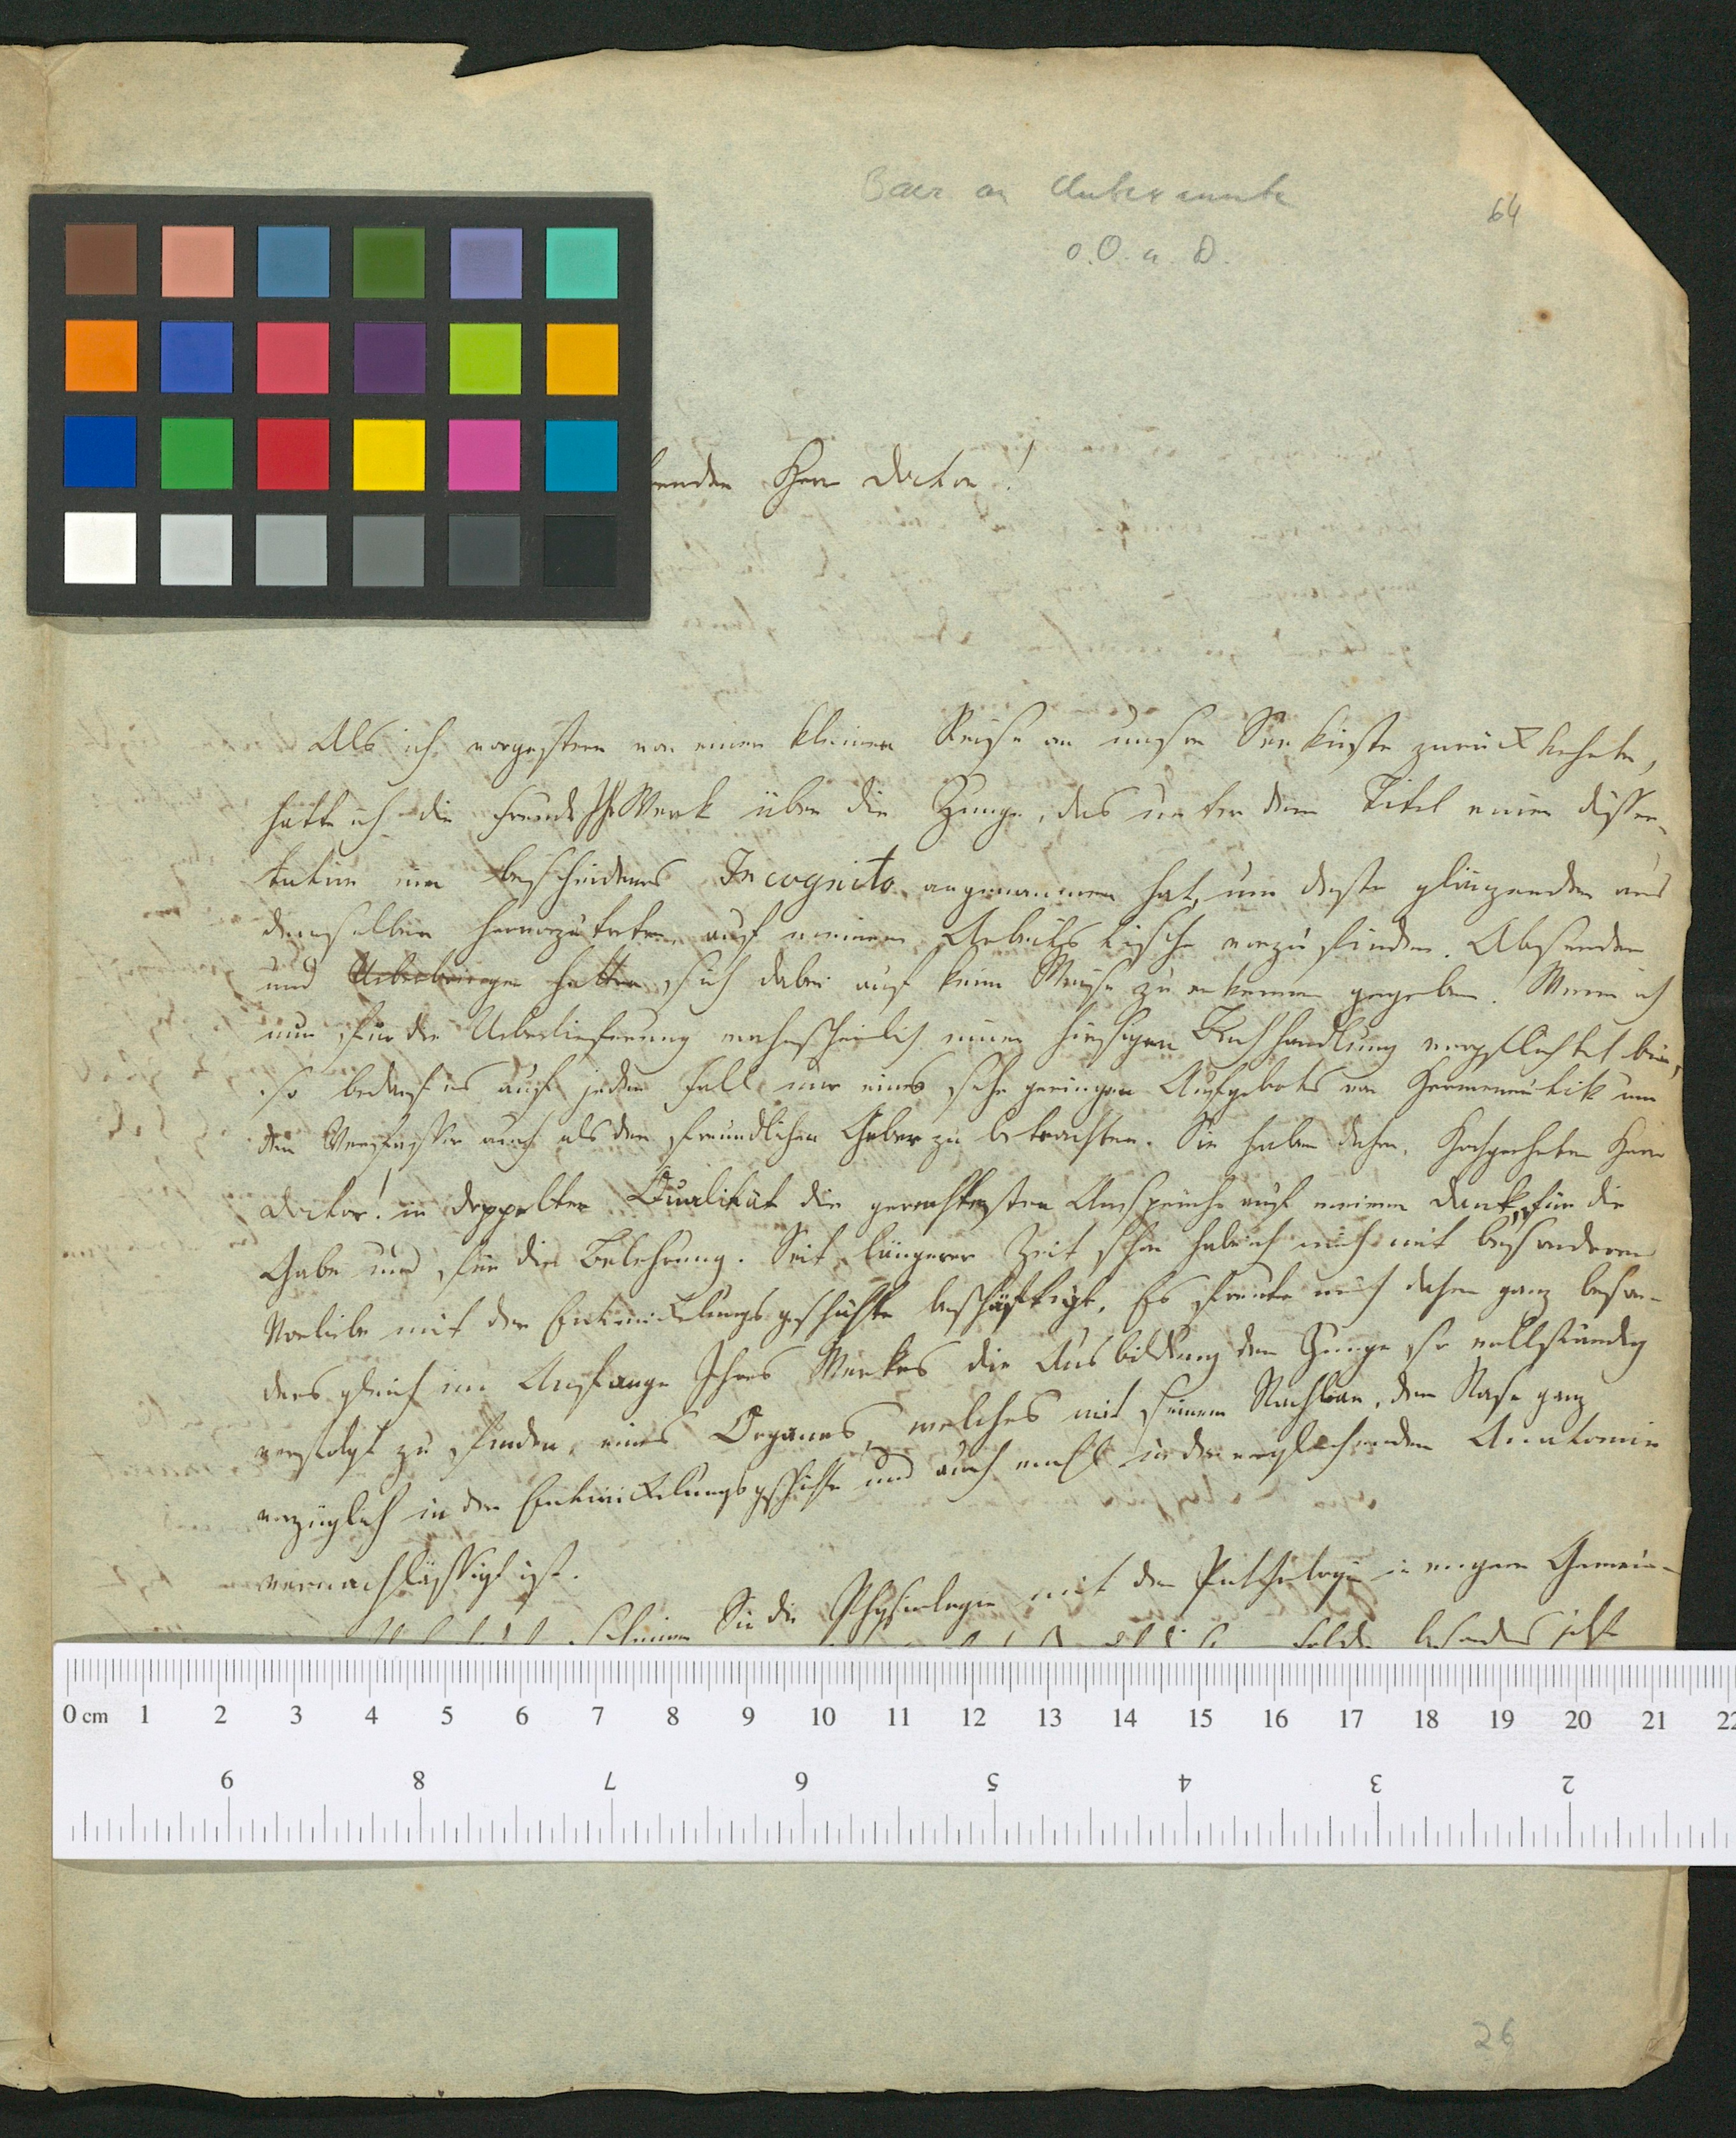 Baer an Unbekannte
64
o. O. u. D.
Herr Doctor!
Als ich vorgestern von einer kleinen Reise an unsre Seeküste zurückkehrte,
hatte ich die Freude Ihr Werk über die Zunge, das unter dem Titel einer Disser-
tation ein bescheidenes Incognito angenommen hat, um desto glänzender aus
demselben hervorzutreten auf meinem Arbeitstische vorzufinden. Absender
und Ueberbringer hatten sich dabei auf keine Weise zu erkennen gegeben. Wenn ich
nun für die Ueberlieferung wahrscheinlich einer hiesigen Buchhandlung verpflichtet bin,
so bedarf es auf jeden Fall nur eines sehr geringen Aufgebots von Hermeneutik um
den Verfasser auch als den freundlichen Geber zu betrachten. Sie haben daher, Hochgeehrter Herr
Doctor! in doppelter Qualität die gerechtesten Ansprüche auf meinen Dank, für die
Gabe und für die Belehrung. Seit längerer Zeit schon habe ich mich mit besonderer
Vorliebe mit der Entwickelungsgeschichte beschäftigt. Es freute mich daher ganz beson-
ders gleich im Anfange Ihres Werkes die Ausbildung der Zunge so vollständig
verfolgt zu finden, eines Organes, welches mit seinem Nachbar, der Nase ganz
vorzüglich in der Entwickelungsgeschichte und auch wohl in der vergleichenden Anatomie
vernachlässigt ist.
Sie die Physiologie mit der Pathologie in engere Gemein-
besonders jetzt
0 cm 1 2 3 4 5 6 7 8 9 10 11 12 13 14 15 16 17 18 19 20 21 22
9 8 7 6 5 4 3 2
26